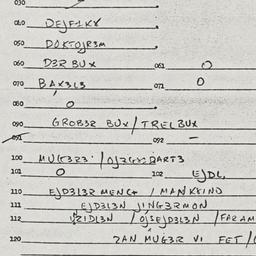 030
040 DEJF1KX
050 DOKTOJR3M
060 D3R BUX 061 O
070 BAX3L3 071 O
080 O
090 GROB3R BUX / TRELBUX
091 092 -
100 MUG3R3
101 O 102 EJDL,
110 EJD3L3R MENC+ / MANKKIND
111 EJD3L3N JING3RMON
112 / OJS EJD3L3N / FARAM
120 ZAN MUG3R VI FET /